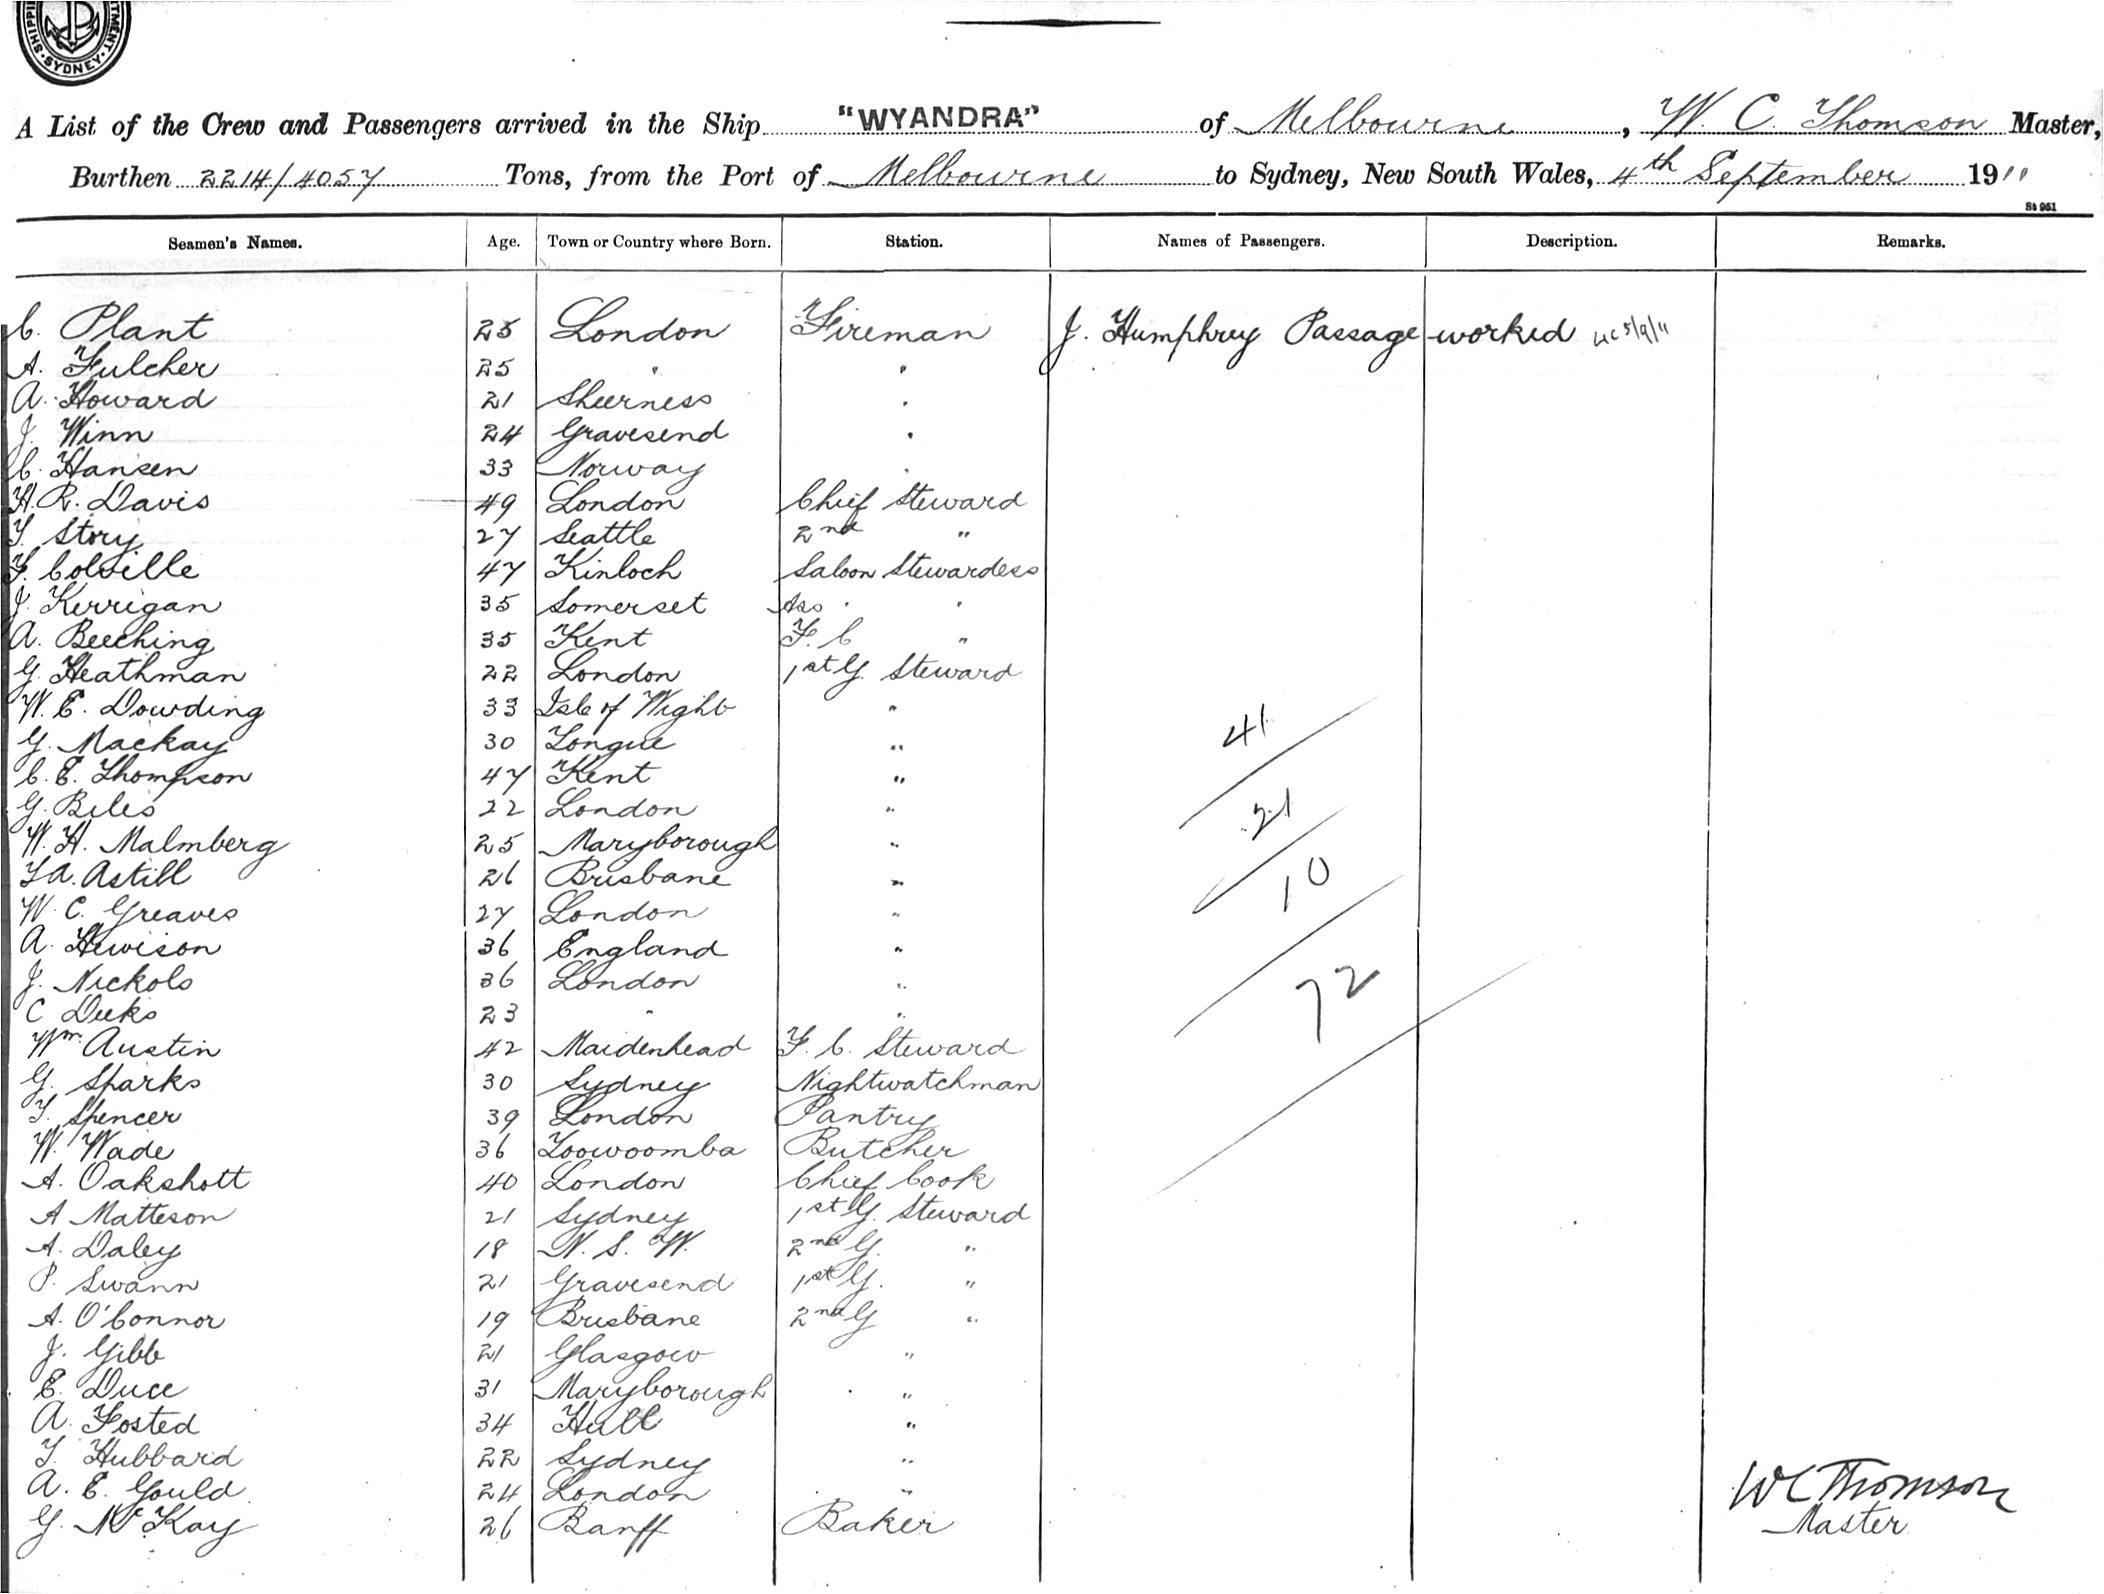 SHIPPI TMENT. SYDNEY.
A List of the Crew and Passengers arrived in the Ship "WYANDRA" of Melbourne, W. C. Thomson Master,
Burthen 2214/4057 Tons, from the Port of Melbourne to Sydney, New South Wales, 4th September 1911
St 951
Seamen's Names. Age. Town or Country where Born. Station. Names of Passengers. Description. Remarks.
C. Plant 25 London Fireman J. Humphrey Passage worked 5/9/11
A. Fulcher 25 " "
A. Howard 21 Sheerness "
J. Winn 24 Gravesend "
C. Hansen 33 Norway "
H. R. Davis 49 London Chief Steward
T. Story 27 Seattle 2nd "
F. Colville 47 Kinloch Saloon Stewardess
J. Kerrigan 35 Somerset Ass " "
A. Beeching 35 Kent F. C "
G. Heathman 22 London 1st G. Steward
W. E. Dowding 33 Isle of Wight "
G. Mackay 30 Tongue "
41
C. E. Thompson 47 Kent "
G. Biles 22 London "
21
W. H. Malmberg 25 Maryborough "
T A. Astill 26 Brisbane "
10
W. C. Greaves 27 London "
A. Hewison 36 England "
J. Nickols 36 London "
72
C Deeks 23 " "
Wm. Austin 42 Maidenhead F. C. Steward
G. Sparks 30 Sydney Nightwatchman
T. Spencer 39 London Pantry
W. Wade 36 Toowoomba Butcher
A. Oakshott 40 London Chief Cook
A Matteson 21 Sydney 1st G. Steward
A. Daley 18 N. S. W. 2nd G. "
P. Swann 21 Gravesend 1st G. "
A. O'Connor 19 Brisbane 2nd G "
J. Gibb 21 Glasgow "
E. Duce 31 Maryborough "
A. Fosted 34 Hull "
T. Hubbard 22 Sydney "
A. E. Gould 24 London "
G. McKay 26 Banff Baker
W C Thomson
Master